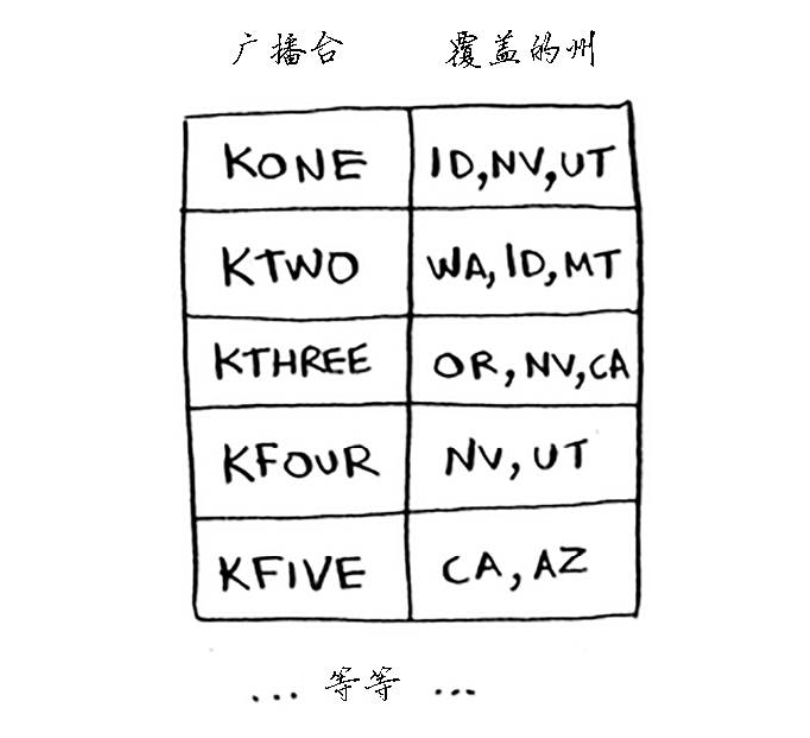 广播台 覆盖的州
KONE ID,NV,UT
KTWO WA,ID,MT
KTHREE OR,NV,CA
KFOUR NV,UT
KFIVE CA,AZ
... 等等 ...